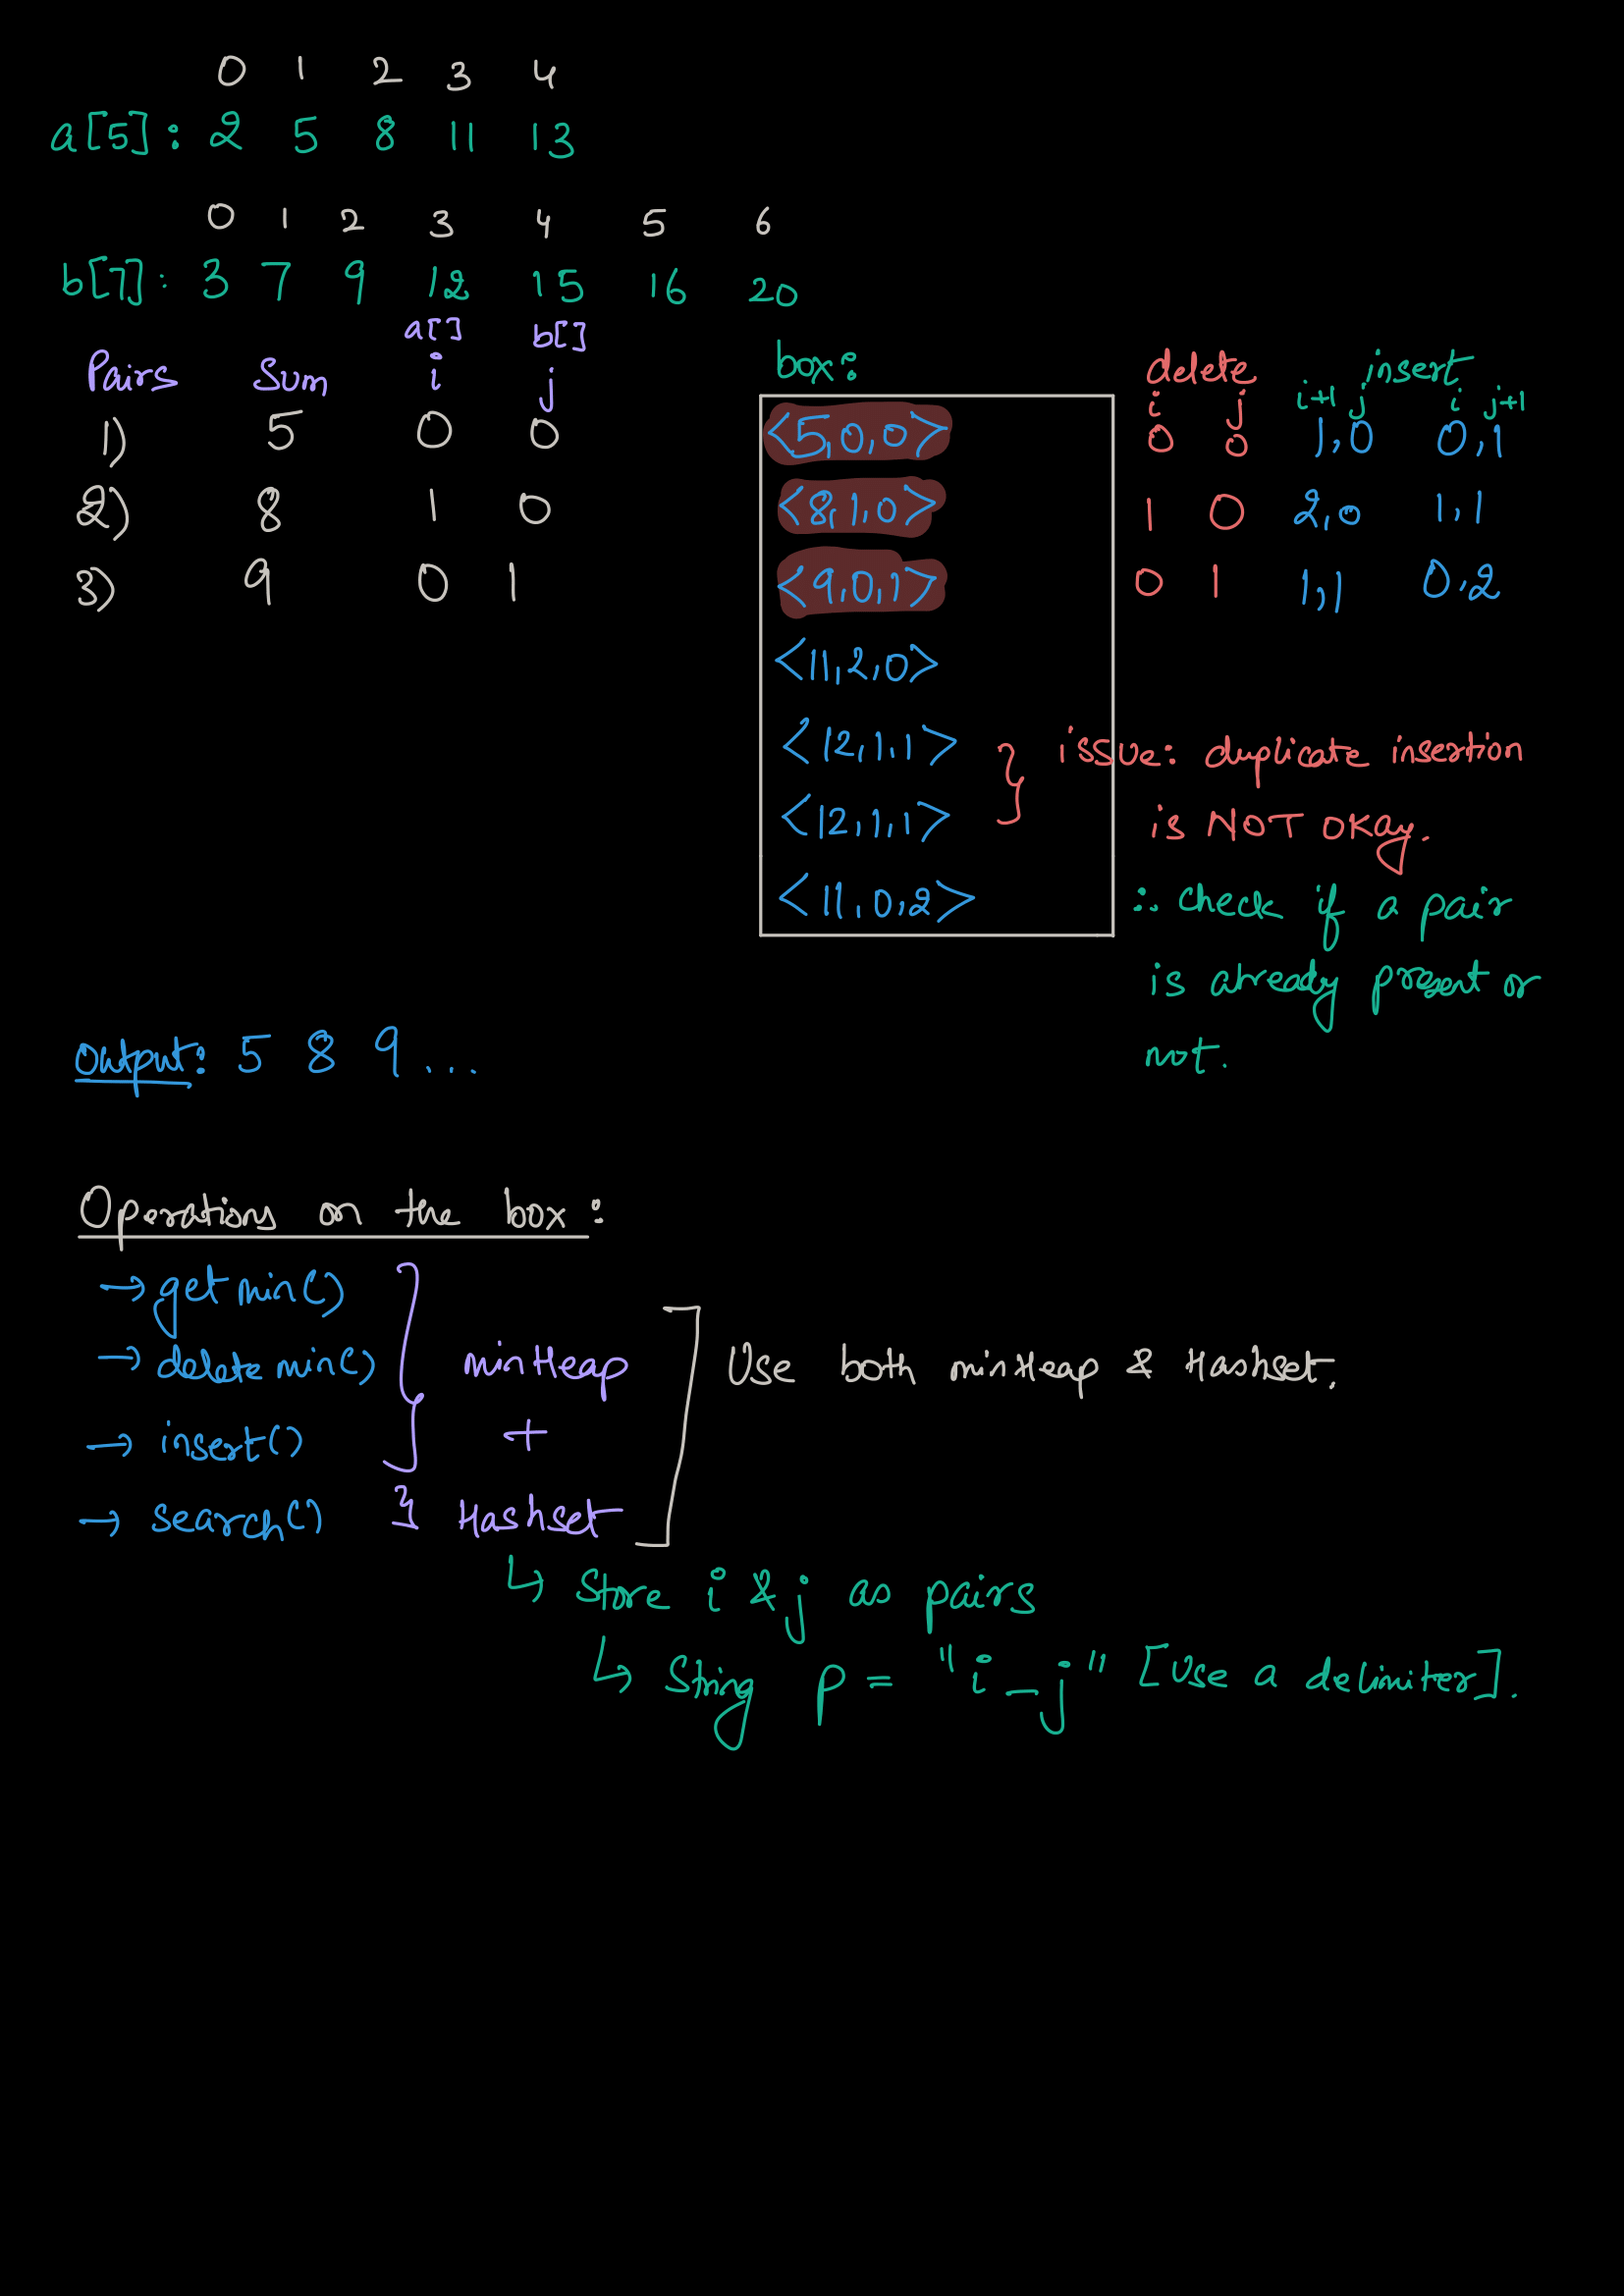 0 1 2 3 4
a[5]: 2 5 8 11 13
0 1 2 3 4 5 6
b[7]: 3 7 9 12 15 16 20
a[] b[]
Pairs Sum i j
1) 5 0 0
2) 8 1 0
3) 9 0 1
box:
<5,0,0>
<8,1,0>
<9,0,1>
<11,2,0>
<12,1,1>
<12,1,1>
<11,0,2>
delete insert
i j i+1 j i j+1
0 0 1,0 0,1
1 0 2,0 1,1
0 1 1,1 0,2
} issue: duplicate insertion
is NOT OKAY.
∴ check if a pair
is already present or
not.
Output: 5 8 9 ...
Operations on the box:
→ getmin()
→ deletemin()
→ insert()
→ search()
} minHeap
+
} Hashset
] Use both minHeap & Hashset.
↳ Store i & j as pairs
↳ String p = "i_j" [Use a delimiter].